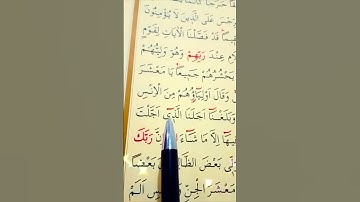 حَرَجًا كَاَنَّمَا
عَلَى الَّذ۪ينَ لَا يُؤْمِنُونَ
قَدْ فَصَّلْنَا الْاٰيَاتِ لِقَوْمٍ
عِنْدَ رَبِّهِمْ وَهُوَ وَلِيُّهُمْ
يَحْشُرُهُمْ جَم۪يعًا يَا مَعْشَرَ
وَقَالَ اَوْلِيَٓاؤُ۬هُمْ مِنَ الْاِنْسِ
وَبَلَغْنَٓا اَجَلَنَا الَّذ۪ٓي اَجَّلْتَ
اِلَّا مَا شَٓاءَ اِنَّ رَبَّكَ
بَعْضَ بَعْضًا
مَعْشَرَ الْجِنِّ اَلَمْ